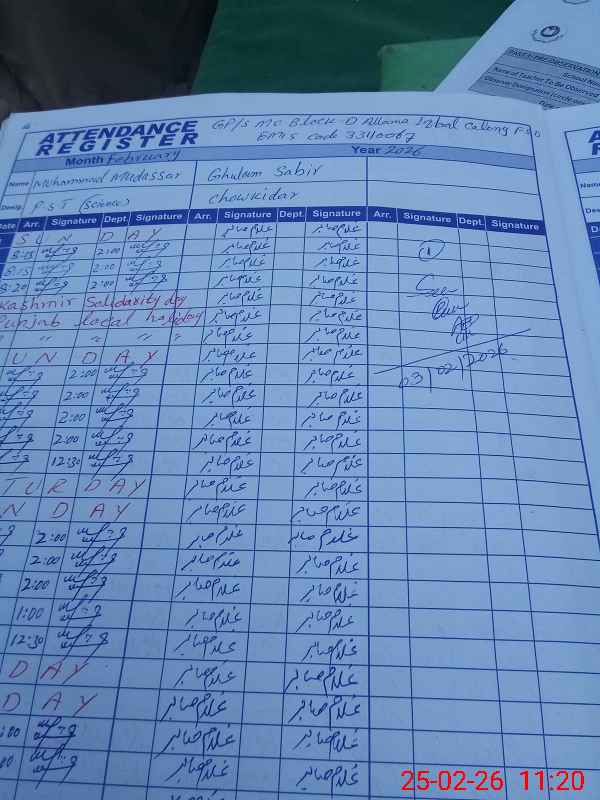 GP/S MC Block-D Allama Iqbal Colony FSD
EMIS code 33110067
ATTENDANCE
REGISTER
Month February Year 2026
Name Muhammad Mudassar Ghulam Sabir
Desig. PST (Science) Chowkidar
Date Arr. Signature Dept. Signature Arr. Signature Dept. Signature Arr. Signature Dept. Signature
SUN DAY غلام صابر غلام صابر
8:15 2:00 غلام صابر غلام صابر
8:15 2:00 غلام صابر غلام صابر
8:20 2:00 غلام صابر غلام صابر
Kashmir Solidarity day غلام صابر غلام صابر
Punjab local holiday غلام صابر غلام صابر
" " " " " غلام صابر غلام صابر
UN DAY غلام صابر غلام صابر
2:00 غلام صابر غلام صابر
2:00 غلام صابر غلام صابر
2:00 غلام صابر غلام صابر
2:00 غلام صابر غلام صابر
12:30 غلام صابر غلام صابر
TURDAY غلام صابر غلام صابر
N DAY غلام صابر غلام صابر
2:00 غلام صابر غلام صابر
2:00 غلام صابر غلام صابر
2:00 غلام صابر غلام صابر
1:00 غلام صابر غلام صابر
12:30 غلام صابر غلام صابر
DAY غلام صابر غلام صابر
DAY غلام صابر غلام صابر
:00 غلام صابر غلام صابر
00 غلام صابر غلام صابر
1
03/02/2026
School Na
Name of Teacher To Be Observed
Date
25-02-26 11:20